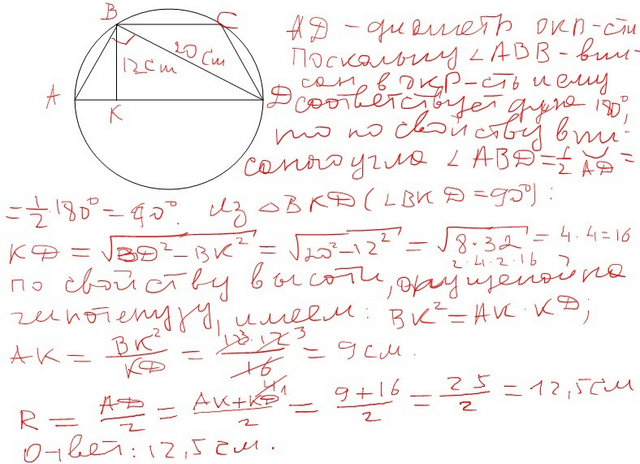 B C
20 cm
12 cm
A K D
AD - диаметр окр-сти
Поскольку ∠ABB - впи-
сан в окр-сть и ему
соответствует дуга 180°,
то по свойству впи-
саного угла ∠ABD = 1/2 ◡AD =
= 1/2 · 180° = 90°. Из △BKD (∠BKD = 90°):
KD = √(BD² - BK²) = √(20² - 12²) = √(8 · 32) = 4 · 4 = 16
2 · 4 · 2 · 16
по свойству высоты, опущеной на
гипотенузу, имеем: BK² = AK · KD;
AK = BK²/KD = 12 · 12 3/16 = 9 см.
R = AD/2 = (AK + KD)/2 = (9 + 16)/2 = 25/2 = 12,5 см
Ответ: 12,5 см.